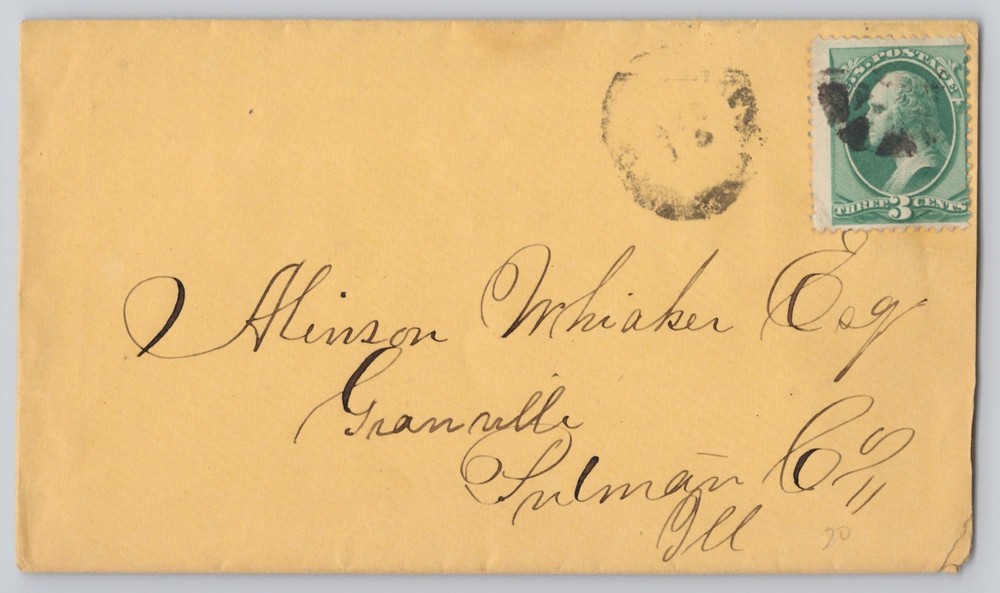 U.S. POSTAGE
THREE 3 CENTS
Atinson Whiaker Esq
Granville
Putman Co
Ill
20